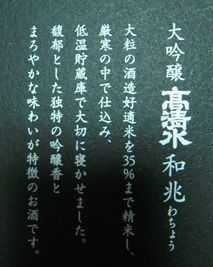 大吟醸 高清水 和兆
わちょう
大粒の酒造好適米を35%まで精米し、
厳寒の中で仕込み、
低温貯蔵庫で大切に寝かせました。
馥郁とした独特の吟醸香と
まろやかな味わいが特徴のお酒です。